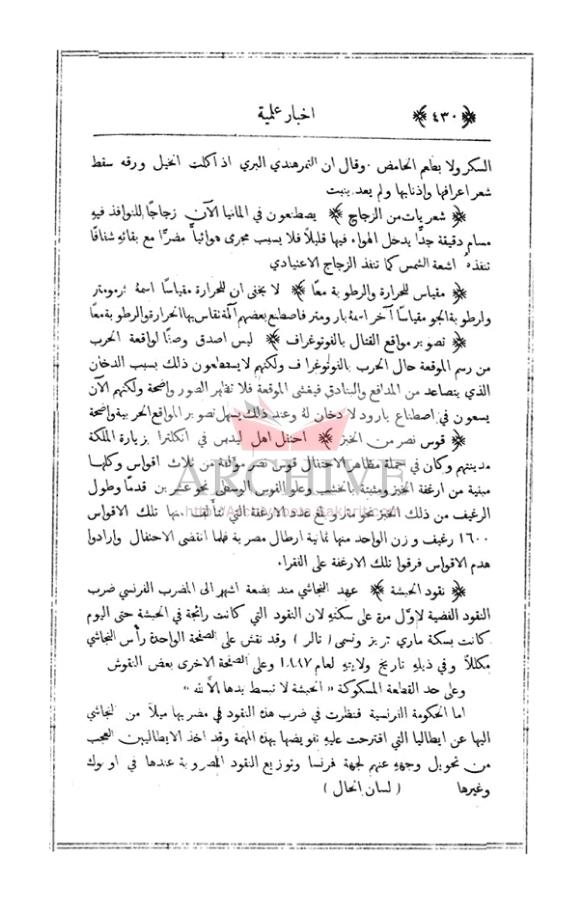 ﴿ ٤٣٠ ﴾
اخبار علمية
السكر ولا بطعم الحامض . وقال ان التمر هندي البري اذ اكلت الخيل ورقه سقط
شعر اعرافها واذنابها ولم يعد ينبت
﴿ شعريات من الزجاج ﴾ يصطنعون في المانيا الآن زجاجًا للنوافذ فيهِ
مسام دقيقة جدًّا يدخل الهواء فيها قليلاً فلا يسبب مجرى هوائياً مضرًّا مع بقائهِ شفافًا
تنفذهُ اشعة الشمس كما تنفذ الزجاج الاعتيادي
﴿ مقياس للحرارة والرطوبة معًا ﴾ لا يخفى ان للحرارة مقياسًا اسمهُ ثرمومتر
ولرطوبة الجو مقياسًا آخر اسمهُ بارومتر فاصطنع بعضهم آلة تقاس بها الحرارة والرطوبة معًا
﴿ تصوير مواقع القتال بالفوتوغراف ﴾ ليس اصدق وصفًا لواقعة الحرب
من رسم الموقعة حال الحرب بالفوتوغراف ولكنهم لا يستطيعون ذلك بسبب الدخان
الذي يتصاعد من المدافع والبنادق فيغشى الموقعة فلا تظهر الصور واضحة ولكنهم الآن
يسعون في اصطناع بارود لا دخان لهُ وعند ذلك يسهل تصوير المواقع الحربية واضحة
﴿ قوس نصر من الخبز ﴾ احتفل اهل ليدس في انكلترا بزيارة الملكة
مدينتهم وكان في جملة مظاهر الاحتفال قوس نصر مؤلفة من ثلاث اقواس وكلها
مبنية من ارغفة الخبز ومثبتة بالخشب وعلو القوس الوسطى نحو عشرين قدمًا وطول
الرغيف من ذلك الخبز نحو وبلغ عدد الارغفة التي منها تلك الاقواس
١٦٠٠ رغيف وزن الواحد منها ثمانية ارطال مصرية فلما انقضى الاحتفال وارادوا
هدم الاقواس فرقوا تلك الارغفة على الفقراء
﴿ نقود الحبشة ﴾ عهد النجاشي منذ بضعة اشهر الى المضرب الفرنسي ضرب
النقود الفضية لاوّل مرة على سكتهِ لان النقود التي كانت رائجة في الحبشة حتى اليوم
كانت بسكة ماري تريز وتسمى ( تالر ) وقد نقش على الصفحة الواحدة رأس النجاشي
مكللاً وفي ذيلهِ تاريخ ولايتهِ لعام ١٨٨٩٧ وعلى الصفحة الاخرى بعض النقوش
وعلى حد القطعة المسكوكة « الحبشة لا تبسط يدها الاّ لله »
اما الحكومة الفرنسية فنظرت في ضرب هذه النقود في مضربها ميلاً من النجاشي
اليها عن ايطاليا التي اقترحت عليهِ تفويضها بهذه المهمة وقد اخذ الايطاليين العجب
من تحويل وجههِ عنهم لجهة فرنسا وتوزيع النقود المضروبة عندها في اوبوك
وغيرها ( لسان الحال )
ARCHIVE